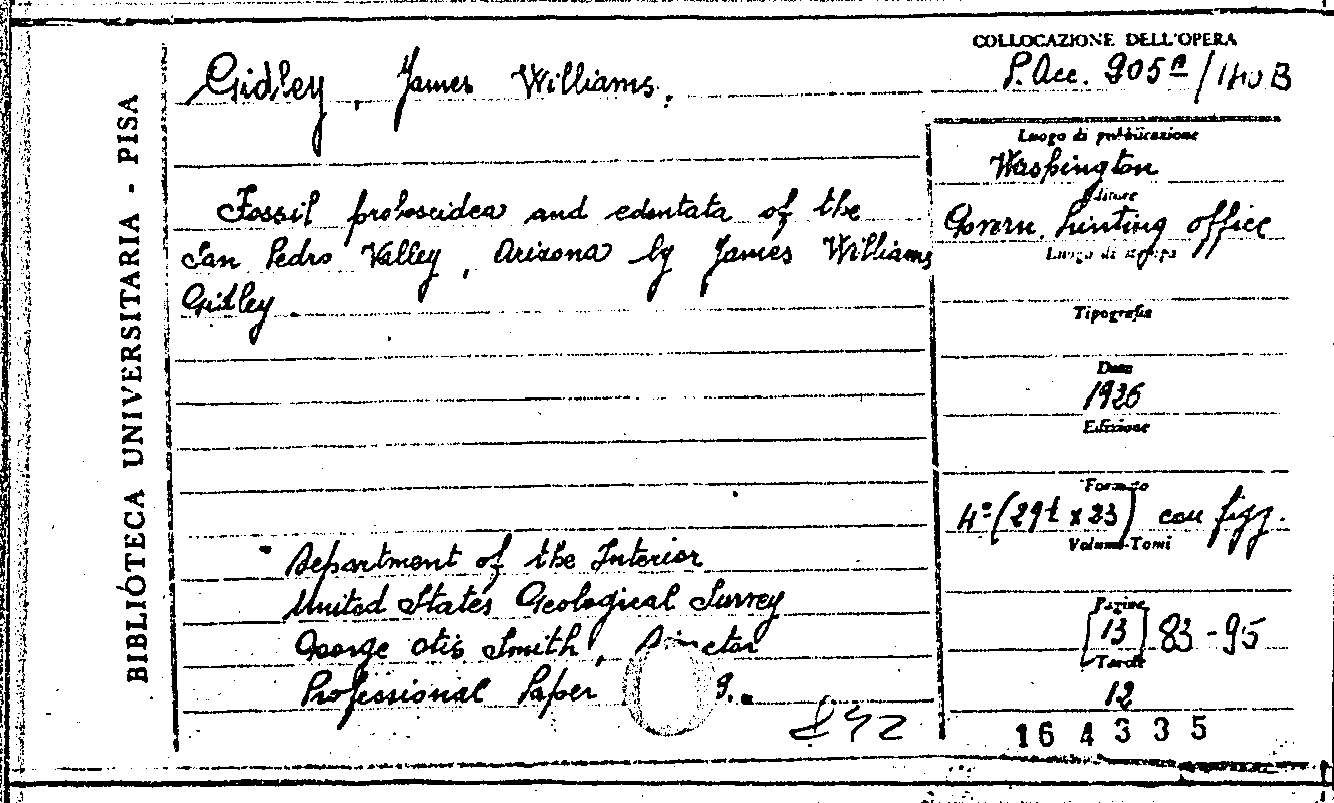 COLLOCAZIONE DELL'OPERA
P. Acc. 905ª / 140 B
Gidley, James Williams.
BIBLIOTECA UNIVERSITARIA - PISA
Fossil proboscidea and edentata of the
San Pedro Valley, Arizona by James Williams
Gidley.
Department of the Interior
United States Geological Survey
George Otis Smith, Director
Professional Paper 9.
Luogo di pubblicazione
Washington
Editore
Govern. Printing office
Luogo di stampa
Tipografia
Data
1926
Edizione
Formato
4º (29½ x 23) con figg.
Volumi-Tomi
Pagine
[13] 83-95
Tavole
12
164335